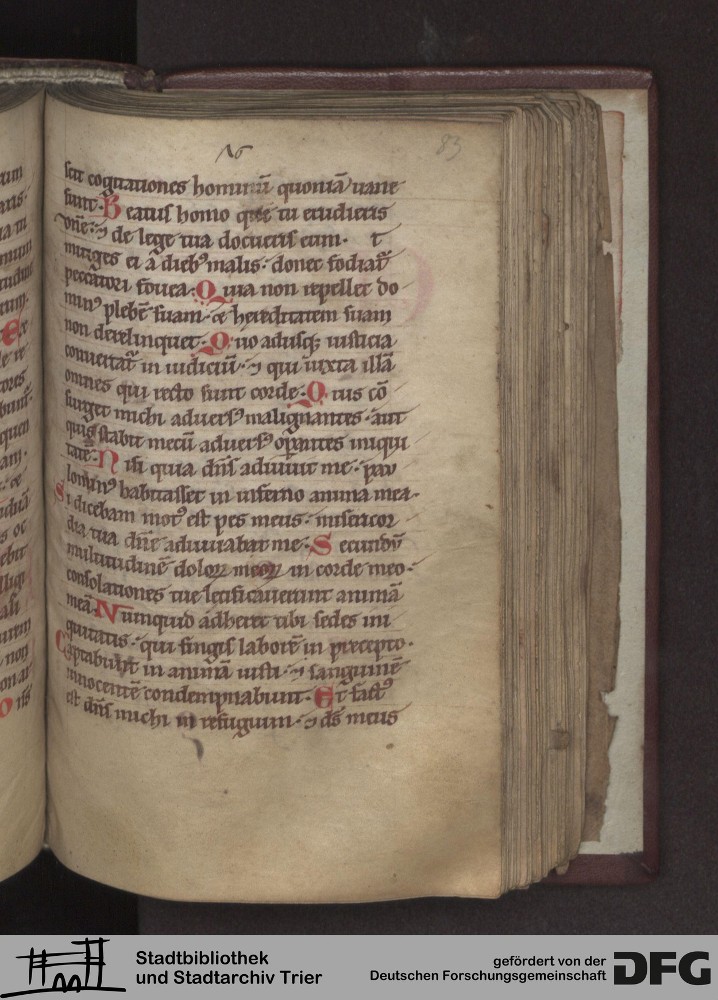 83
scit cogitationes hominū quoniā uane
sunt· Beatus homo quē tu erudieris
dn̄e· ⁊ de lege tua docueris eum· t
mitiges ei a dieb᷒ malis· donec fodiat᷑
peccatori fouea· Quia non repellet do
min᷒ plebē suam· & hereditatem suam
non derelinquet· Quo adusq; iusticia
conuertat᷑ in iudiciū· ⁊ qui iuxta illā
omnes qui recto sunt corde· Quis cō
surget michi aduers᷒ malignantes· aut
quis stabit mecū aduers᷒ opantes iniqui
tatē· Nisi quia dn̄s adiuuit me· pau
lomin᷒ habitasset in inferno anima mea·
Si dicebam mot᷒ est pes meus· misericor
dia tua dn̄e adiuuabat me· Secundū
multitudinē doloꝝ meoꝝ in corde meo·
consolationes tue letificauerunt animā
meā· Numquid adheret tibi sedes ini
quitatis· qui fingis laborē in precepto·
Captabunt in animā iusti· ⁊ sanguinē
innocentē condempnabunt· Et fact᷒
est dn̄s michi in refugium· ⁊ ds̄ meus
Stadtbibliothek
und Stadtarchiv Trier
gefördert von der
Deutschen Forschungsgemeinschaft DFG